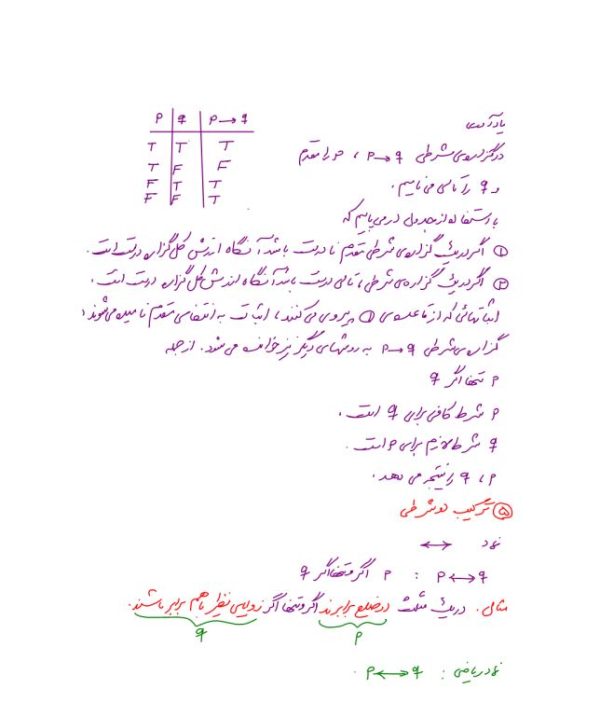 یادآوری
p q p → q
T T T
T F F
F T T
F F T
در گزاره‌ی شرطی p → q ، p را مقدم
و q را تالی می نامیم.
با استفاده از جدول در می یابیم که
① اگر در یک گزاره‌ی شرطی مقدم نادرست باشد آنگاه ارزش کل گزاره درست است.
② اگر در یک گزاره‌ی شرطی، تالی درست باشد آنگاه ارزش کل گزاره درست است.
اثباتهائی که از قاعده‌ی ① پیروی می کنند، اثبات به انتفای مقدم نامیده می شوند؛
گزاره‌ی شرطی p → q به روشهای دیگر نیز خوانده می شود. از جمله
p تنها اگر q
p شرط کافی برای q است.
q شرط لازم برای p است.
p ، q را نتیجه می دهد.
⑤ ترکیب دو شرطی
نماد ↔
p ↔ q : p اگر و تنها اگر q
مثال. در یک مثلث دو ضلع برابرند اگر و تنها اگر زوایای نظیر با هم برابر باشند.
p q
نماد ریاضی : p ↔ q.